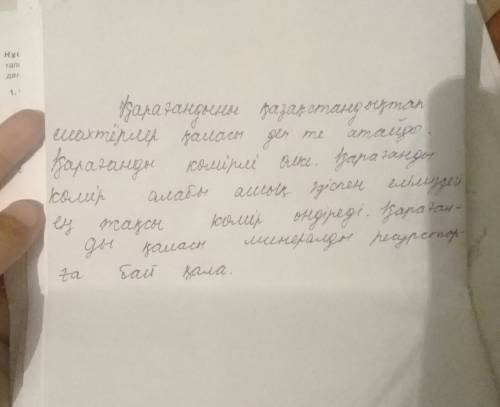 Қарағандыны қазақстандықтар
шахтёрлер қаласы деп те атайды.
Қарағанды көмірлі өлкe. Қарағанды
көмір алабы ашық әдіспен еліміздегі
ең жақсы көмір өндіреді. Қараған-
ды қаласы минералды ресурстар-
ға бай қала.